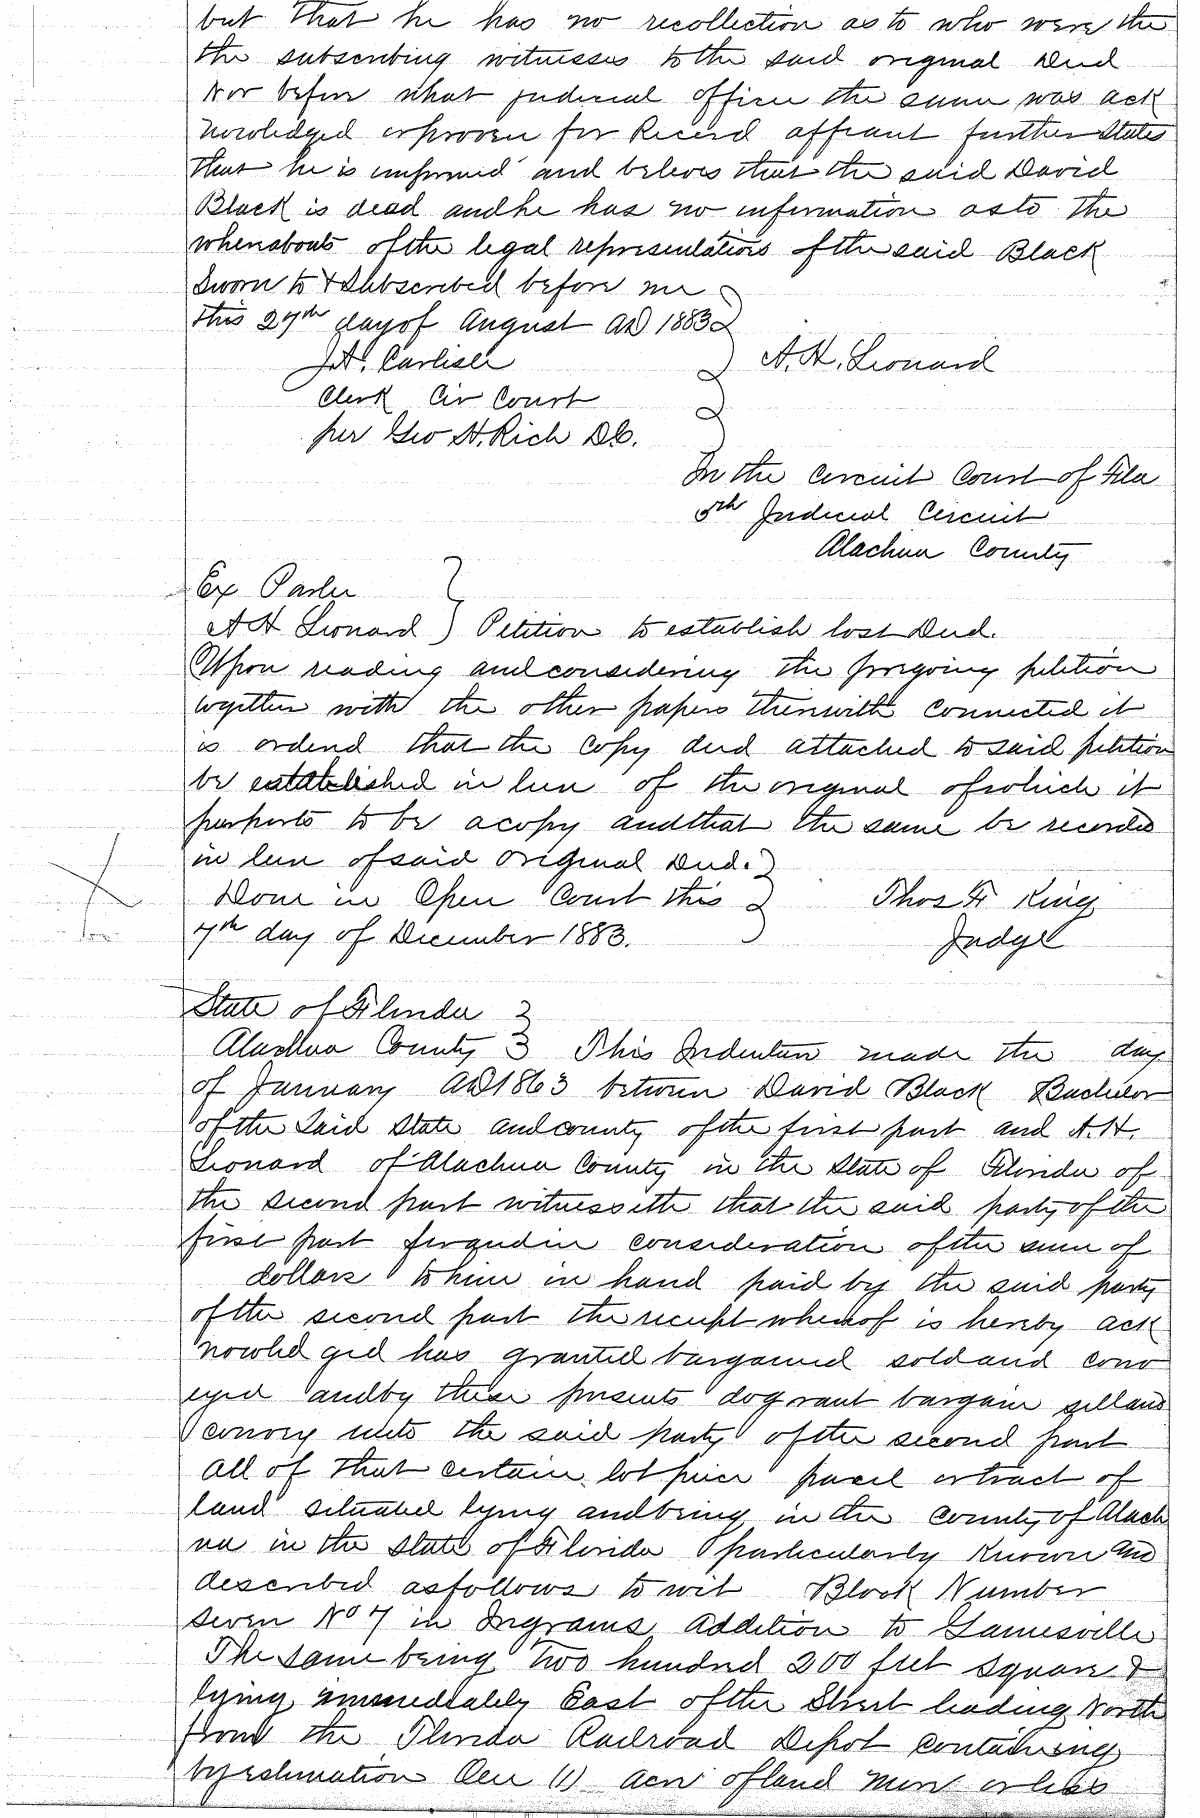 but that he has no recollection as to who were the
the subscribing witnesses to the said original Deed
Nor before what judicial officer the same was ack
nowledged or proven for Record affiant further States
that he is informed and believes that the said David
Black is dead and he has no information as to the
whereabouts of the legal representatives of the said Black
Sworn to & Subscribed before me
this 27th day of August AD 1883
J.A. Carlisle
A.H. Leonard
Clerk Cir Court
per Geo H. Rich D.C.
In the Circuit Court of Fla
5th Judicial Circuit
Alachua County
Ex Parte
A H Leonard } Petition to establish lost Deed.
Upon reading and considering the foregoing petition
together with the other papers therewith connected it
is ordered that the copy deed attached to said petition
be established in lieu of the original of which it
purports to be a copy and that the same be recorded
in lieu of said original Deed.
Done in Open Court this
Thos F. King
7th day of December 1883.
Judge
State of Florida }
Alachua County } This Indenture made the day
of January AD 1863 between David Black Bachelor
of the Said State and county of the first part and A.H.
Leonard of Alachua County in the State of Florida of
the second part witnesseth that the said party of the
first part for and in consideration of the sum of
dollars to him in hand paid by the said party
of the second part the receipt whereof is hereby ack
nowled ged has granted bargained sold and conv
eyed and by these presents do grant bargain sell and
convey unto the said party of the second part
All of that certain lot piece parcel or tract of
land situated lying and being in the county of Alach
ua in the State of Florida particularly known and
described as follows to wit Block Number
Seven No 7 in Ingrams Addition to Gainesville
The same being two hundred 200 feet square &
lying immediately East of the Street leading North
from the Florida Railroad Depot containing
by estimation One (1) acre of land more or less